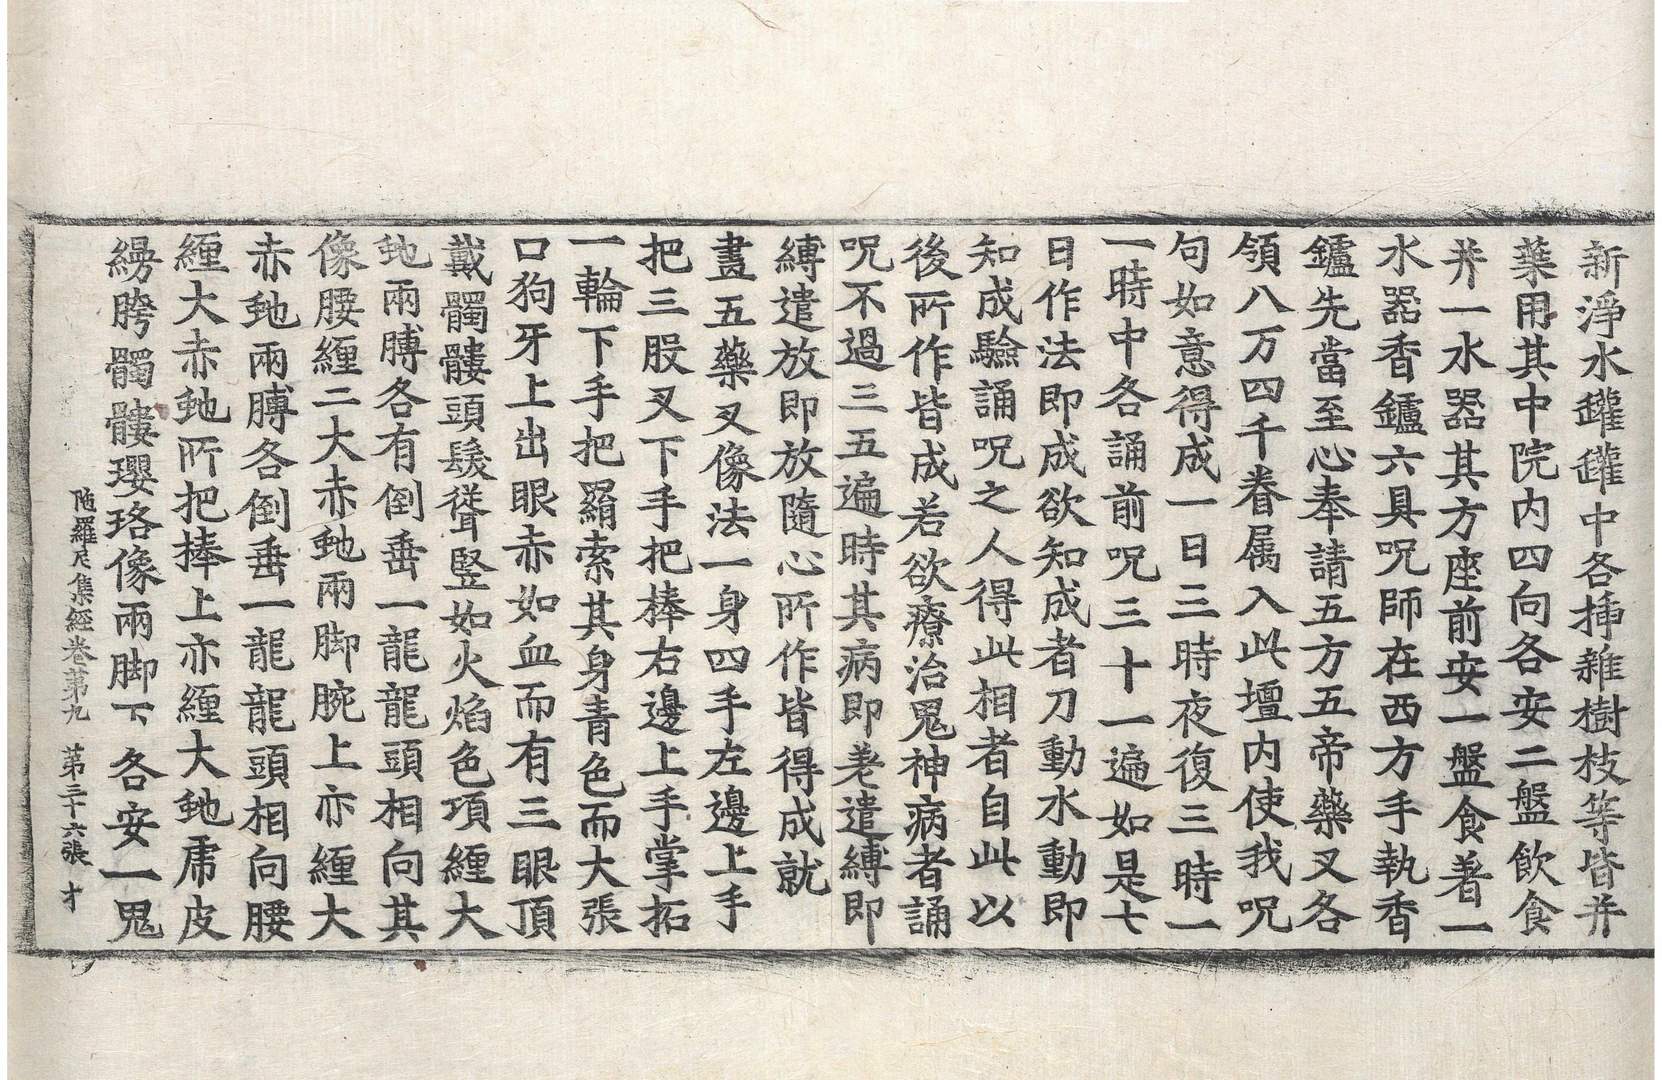 新淨水罐罐中各揷雜樹枝等皆并
藥用其中院内四向各安二盤飮食
并一水器其方座前安一盤食著一
水器香鑪六具呪師在西方手執香
鑪先當至心奉請五方五帝藥叉各
領八万四千眷属入此壇内使我呪
句如意得成一日三時夜復三時一
一時中各誦前呪三十一遍如是七
日作法即成欲知成者刀動水動即
知成驗誦呪之人得此相者自此以
後所作皆成若欲療治鬼神病者誦
呪不過三五遍時其病即差遣縛即
縛遣放即放隨心所作皆得成就
畫五藥叉像法一身四手左邊上手
把三股叉下手把棒右邊上手掌拓
一輪下手把羂索其身青色而大張
口狗牙上出眼赤如血而有三眼頂
戴髑髏頭髮聳竪如火焰色項纏大
虵兩膊各有倒垂一龍龍頭相向其
像腰纏二大赤虵兩脚腕上亦纏大
赤虵兩膊各倒垂一龍龍頭相向腰
纏大赤虵所把捧上亦纏大虵虎皮
縵胯髑髏瓔珞像兩脚下各安一鬼
陁羅尼集經卷第九　第三十六張　才